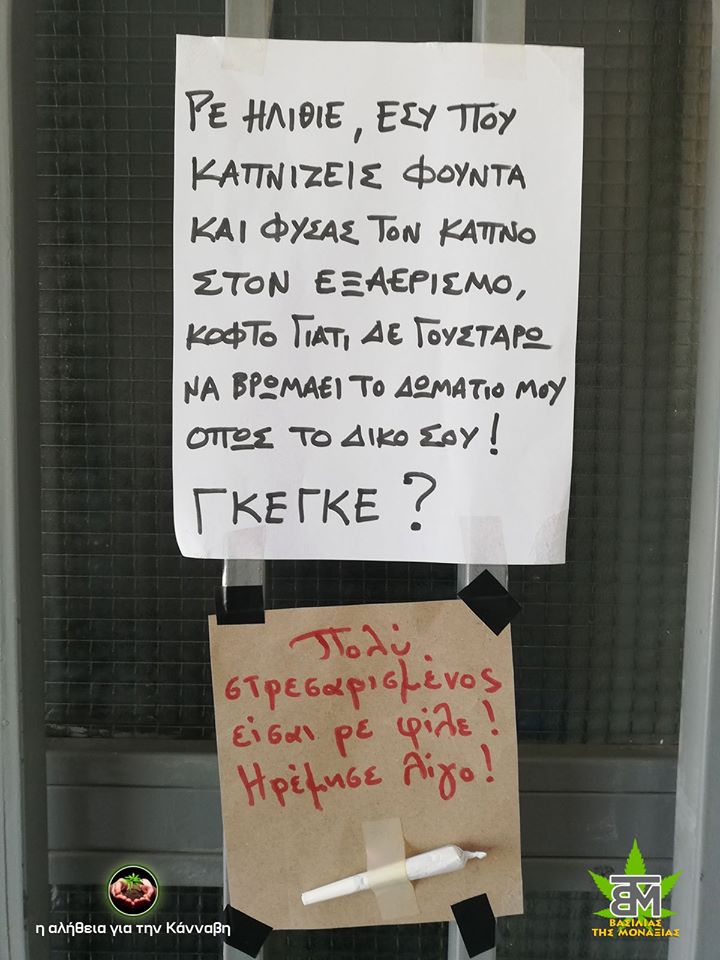 ΡΕ ΗΛΙΘΙΕ, ΕΣΥ ΠΟΥ
ΚΑΠΝΙΖΕΙΣ ΦΟΥΝΤΑ
ΚΑΙ ΦΥΣΑΣ ΤΟΝ ΚΑΠΝΟ
ΣΤΟΝ ΕΞΑΕΡΙΣΜΟ,
ΚΟΦΤΟ ΓΙΑΤΙ ΔΕ ΓΟΥΣΤΑΡΩ
ΝΑ ΒΡΩΜΑΕΙ ΤΟ ΔΩΜΑΤΙΟ ΜΟΥ
ΟΠΩΣ ΤΟ ΔΙΚΟ ΣΟΥ!
ΓΚΕΓΚΕ?
Πολύ
στρεσαρισμένος
είσαι ρε φίλε!
Ηρέμησε λίγο!
η αλήθεια για την Κάνναβη
ΒΜ
ΒΑΣΙΛΙΑΣ
ΤΗΣ ΜΟΝΑΞΙΑΣ